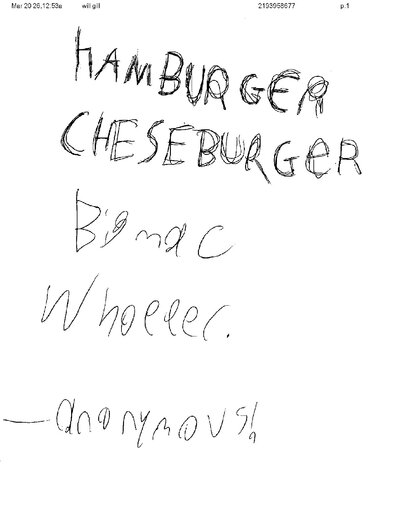 Mar 20 26, 12:53a will gill 2193958677 p.1
HAMBURGER
CHESEBURGER
Bigmac
Whoeeer.
—anonymous!